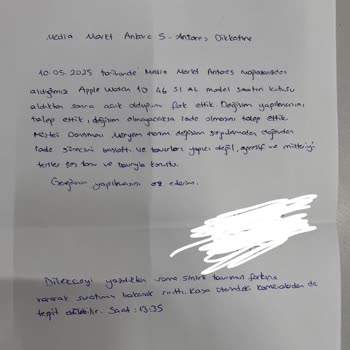 Media Markt Ankara 5 - Antares Dikkatine
10.05.2025 tarihinde Media Markt Antares Mağazasından
aldığımız Apple Watch 10 46 SI AL model saatin kutusu
aldıktan sonra açık olduğunu fark ettik. Değişim yapılmasını
talep ettik, değişim olmayacaksa iade olmasını talep ettik.
Müşteri Danışmanı Meryem hanım değişim seçilmeden doğrudan
iade sürecini başlattı. Ve tavırları yapıcı değil, agresif ve müşteriyi
tersler ses tonu ve tavrıyla konuştu.
Gereğinin yapılmasını arz ederim.
Dilekçeyi yazdıktan sonra sinirli tavrımın farkına
vararak suratıma bakarak sırıttı. Kasa üzerindeki kameralardan da
tespit edilebilir. Saat: 13:35